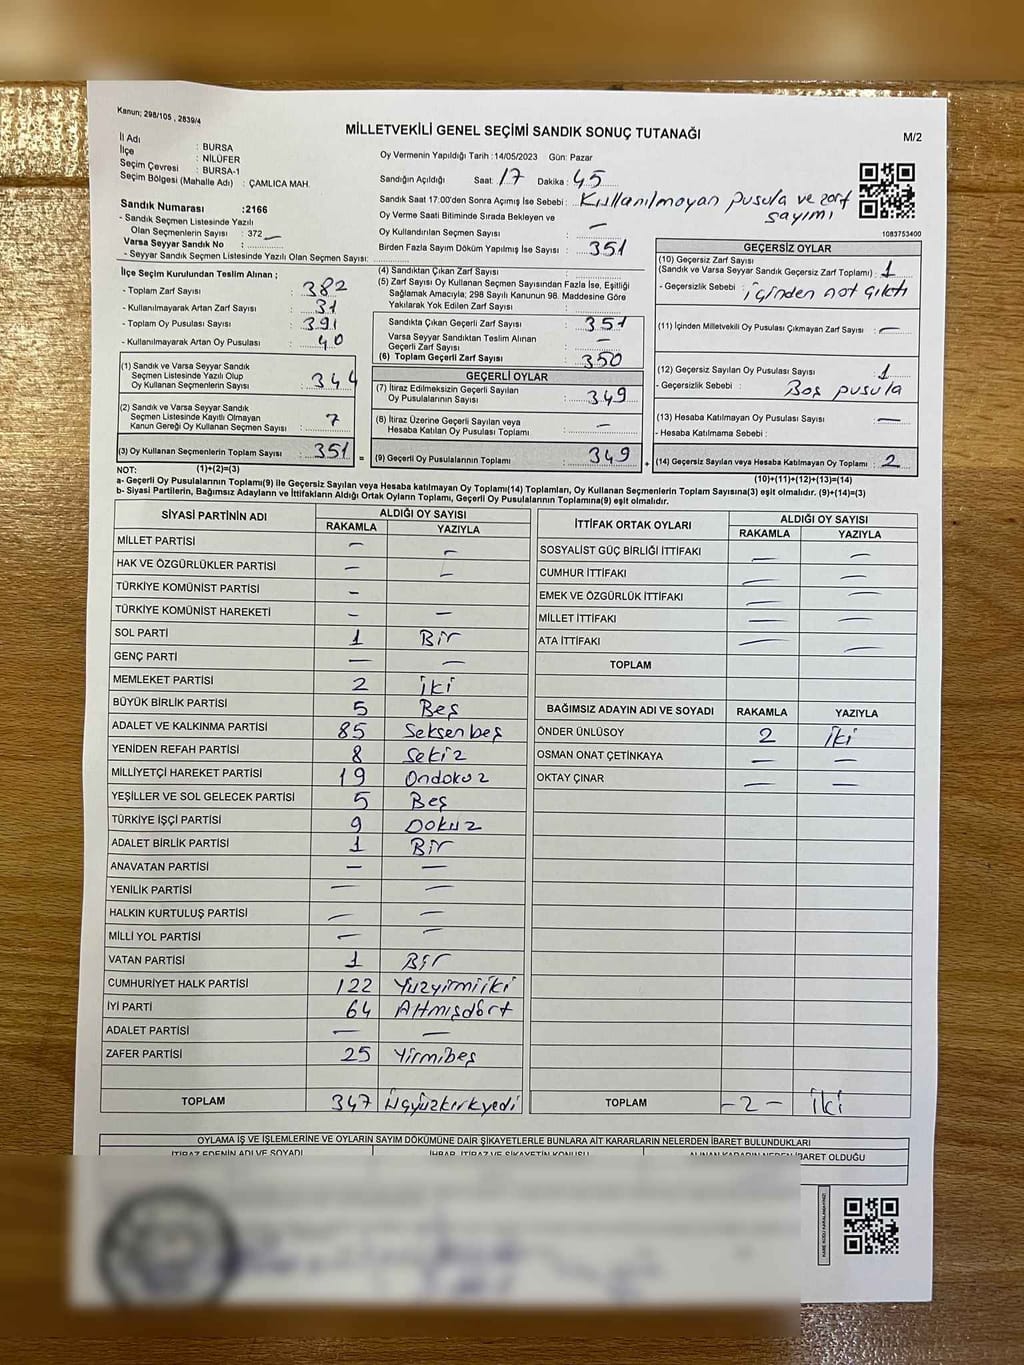 Kanun; 298/105 , 2839/4
MİLLETVEKİLİ GENEL SEÇİMİ SANDIK SONUÇ TUTANAĞI
M/2
İl Adı : BURSA
İlçe : NİLÜFER
Seçim Çevresi : BURSA-1
Seçim Bölgesi (Mahalle Adı) : ÇAMLICA MAH.
Sandık Numarası :2166
- Sandık Seçmen Listesinde Yazılı
Olan Seçmenlerin Sayısı : 372
Varsa Seyyar Sandık No :
- Seyyar Sandık Seçmen Listesinde Yazılı Olan Seçmen Sayısı:
Oy Vermenin Yapıldığı Tarih :14/05/2023 Gün: Pazar
Sandığın Açıldığı Saat: 17 Dakika: 45
Sandık Saat 17:00'den Sonra Açımış İse Sebebi : Kullanılmayan pusula ve zarf
sayımı
Oy Verme Saati Bitiminde Sırada Bekleyen ve
Oy Kullandırılan Seçmen Sayısı : —
Birden Fazla Sayım Döküm Yapılmış İse Sayısı : 351
1083753400
İlçe Seçim Kurulundan Teslim Alınan ;
- Toplam Zarf Sayısı : 382
- Kullanılmayarak Artan Zarf Sayısı : 31
- Toplam Oy Pusulası Sayısı : 391
- Kullanılmayarak Artan Oy Pusulası : 40
(1) Sandık ve Varsa Seyyar Sandık
Seçmen Listesinde Yazılı Olup
Oy Kullanan Seçmenlerin Sayısı : 344
(2) Sandık ve Varsa Seyyar Sandık
Seçmen Listesinde Kayıtlı Olmayan
Kanun Gereği Oy Kullanan Seçmen Sayısı : 7
(3) Oy Kullanan Seçmenlerin Toplam Sayısı : 351 =
(4) Sandıktan Çıkan Zarf Sayısı :
(5) Zarf Sayısı Oy Kullanan Seçmen Sayısından Fazla İse, Eşitliği
Sağlamak Amacıyla; 298 Sayılı Kanunun 98. Maddesine Göre
Yakılarak Yok Edilen Zarf Sayısı :
Sandıkta Çıkan Geçerli Zarf Sayısı : 351
Varsa Seyyar Sandıktan Teslim Alınan
Geçerli Zarf Sayısı : —
(6) Toplam Geçerli Zarf Sayısı : 350
GEÇERLİ OYLAR
(7) İtiraz Edilmeksizin Geçerli Sayılan
Oy Pusulalarının Sayısı : 349
(8) İtiraz Üzerine Geçerli Sayılan veya
Hesaba Katılan Oy Pusulası Toplamı : —
(9) Geçerli Oy Pusulalarının Toplamı : 349 +
GEÇERSİZ OYLAR
(10) Geçersiz Zarf Sayısı
(Sandık ve Varsa Seyyar Sandık Geçersiz Zarf Toplamı) : 1
- Geçersizlik Sebebi : İçinden not çıktı
(11) İçinden Milletvekili Oy Pusulası Çıkmayan Zarf Sayısı : —
(12) Geçersiz Sayılan Oy Pusulası Sayısı : 1
- Geçersizlik Sebebi : Boş pusula
(13) Hesaba Katılmayan Oy Pusulası Sayısı : —
- Hesaba Katılmama Sebebi :
(14) Geçersiz Sayılan veya Hesaba Katılmayan Oy Toplamı : 2
NOT: (1)+(2)=(3) (10)+(11)+(12)+(13)=(14)
a- Geçerli Oy Pusulalarının Toplamı(9) ile Geçersiz Sayılan veya Hesaba katılmayan Oy Toplamı(14) Toplamları, Oy Kullanan Seçmenlerin Toplam Sayısına(3) eşit olmalıdır. (9)+(14)=(3)
b- Siyasi Partilerin, Bağımsız Adayların ve İttifakların Aldığı Ortak Oyların Toplamı, Geçerli Oy Pusulalarının Toplamına(9) eşit olmalıdır.
SİYASİ PARTİNİN ADI ALDIĞI OY SAYISI
RAKAMLA YAZIYLA
MİLLET PARTİSİ — —
HAK VE ÖZGÜRLÜKLER PARTİSİ — —
TÜRKİYE KOMÜNİST PARTİSİ —
TÜRKİYE KOMÜNİST HAREKETİ — —
SOL PARTİ 1 Bir
GENÇ PARTİ — —
MEMLEKET PARTİSİ 2 İki
BÜYÜK BİRLİK PARTİSİ 5 Beş
ADALET VE KALKINMA PARTİSİ 85 Seksenbeş
YENİDEN REFAH PARTİSİ 8 Sekiz
MİLLİYETÇİ HAREKET PARTİSİ 19 Ondokuz
YEŞİLLER VE SOL GELECEK PARTİSİ 5 Beş
TÜRKİYE İŞÇİ PARTİSİ 9 Dokuz
ADALET BİRLİK PARTİSİ 1 Bir
ANAVATAN PARTİSİ — —
YENİLİK PARTİSİ — —
HALKIN KURTULUŞ PARTİSİ — —
MİLLİ YOL PARTİSİ — —
VATAN PARTİSİ 1 Bir
CUMHURİYET HALK PARTİSİ 122 Yüzyirmiiki
İYİ PARTİ 64 Altmışdört
ADALET PARTİSİ — —
ZAFER PARTİSİ 25 Yirmibeş
TOPLAM 347 Üçyüzkırkyedi
İTTİFAK ORTAK OYLARI ALDIĞI OY SAYISI
RAKAMLA YAZIYLA
SOSYALİST GÜÇ BİRLİĞİ İTTİFAKI — —
CUMHUR İTTİFAKI — —
EMEK VE ÖZGÜRLÜK İTTİFAKI — —
MİLLET İTTİFAKI — —
ATA İTTİFAKI — —
TOPLAM
BAĞIMSIZ ADAYIN ADI VE SOYADI RAKAMLA YAZIYLA
ÖNDER ÜNLÜSOY 2 İki
OSMAN ONAT ÇETİNKAYA — —
OKTAY ÇINAR — —
TOPLAM -2- İki
OYLAMA İŞ VE İŞLEMLERİNE VE OYLARIN SAYIM DÖKÜMÜNE DAİR ŞİKAYETLERLE BUNLARA AİT KARARLARIN NELERDEN İBARET BULUNDUKLARI
İTİRAZ EDENİN ADI VE SOYADI İHBAR, İTİRAZ VE ŞİKAYETİN KONUSU ALINAN KARARIN NEDEN İBARET OLDUĞU